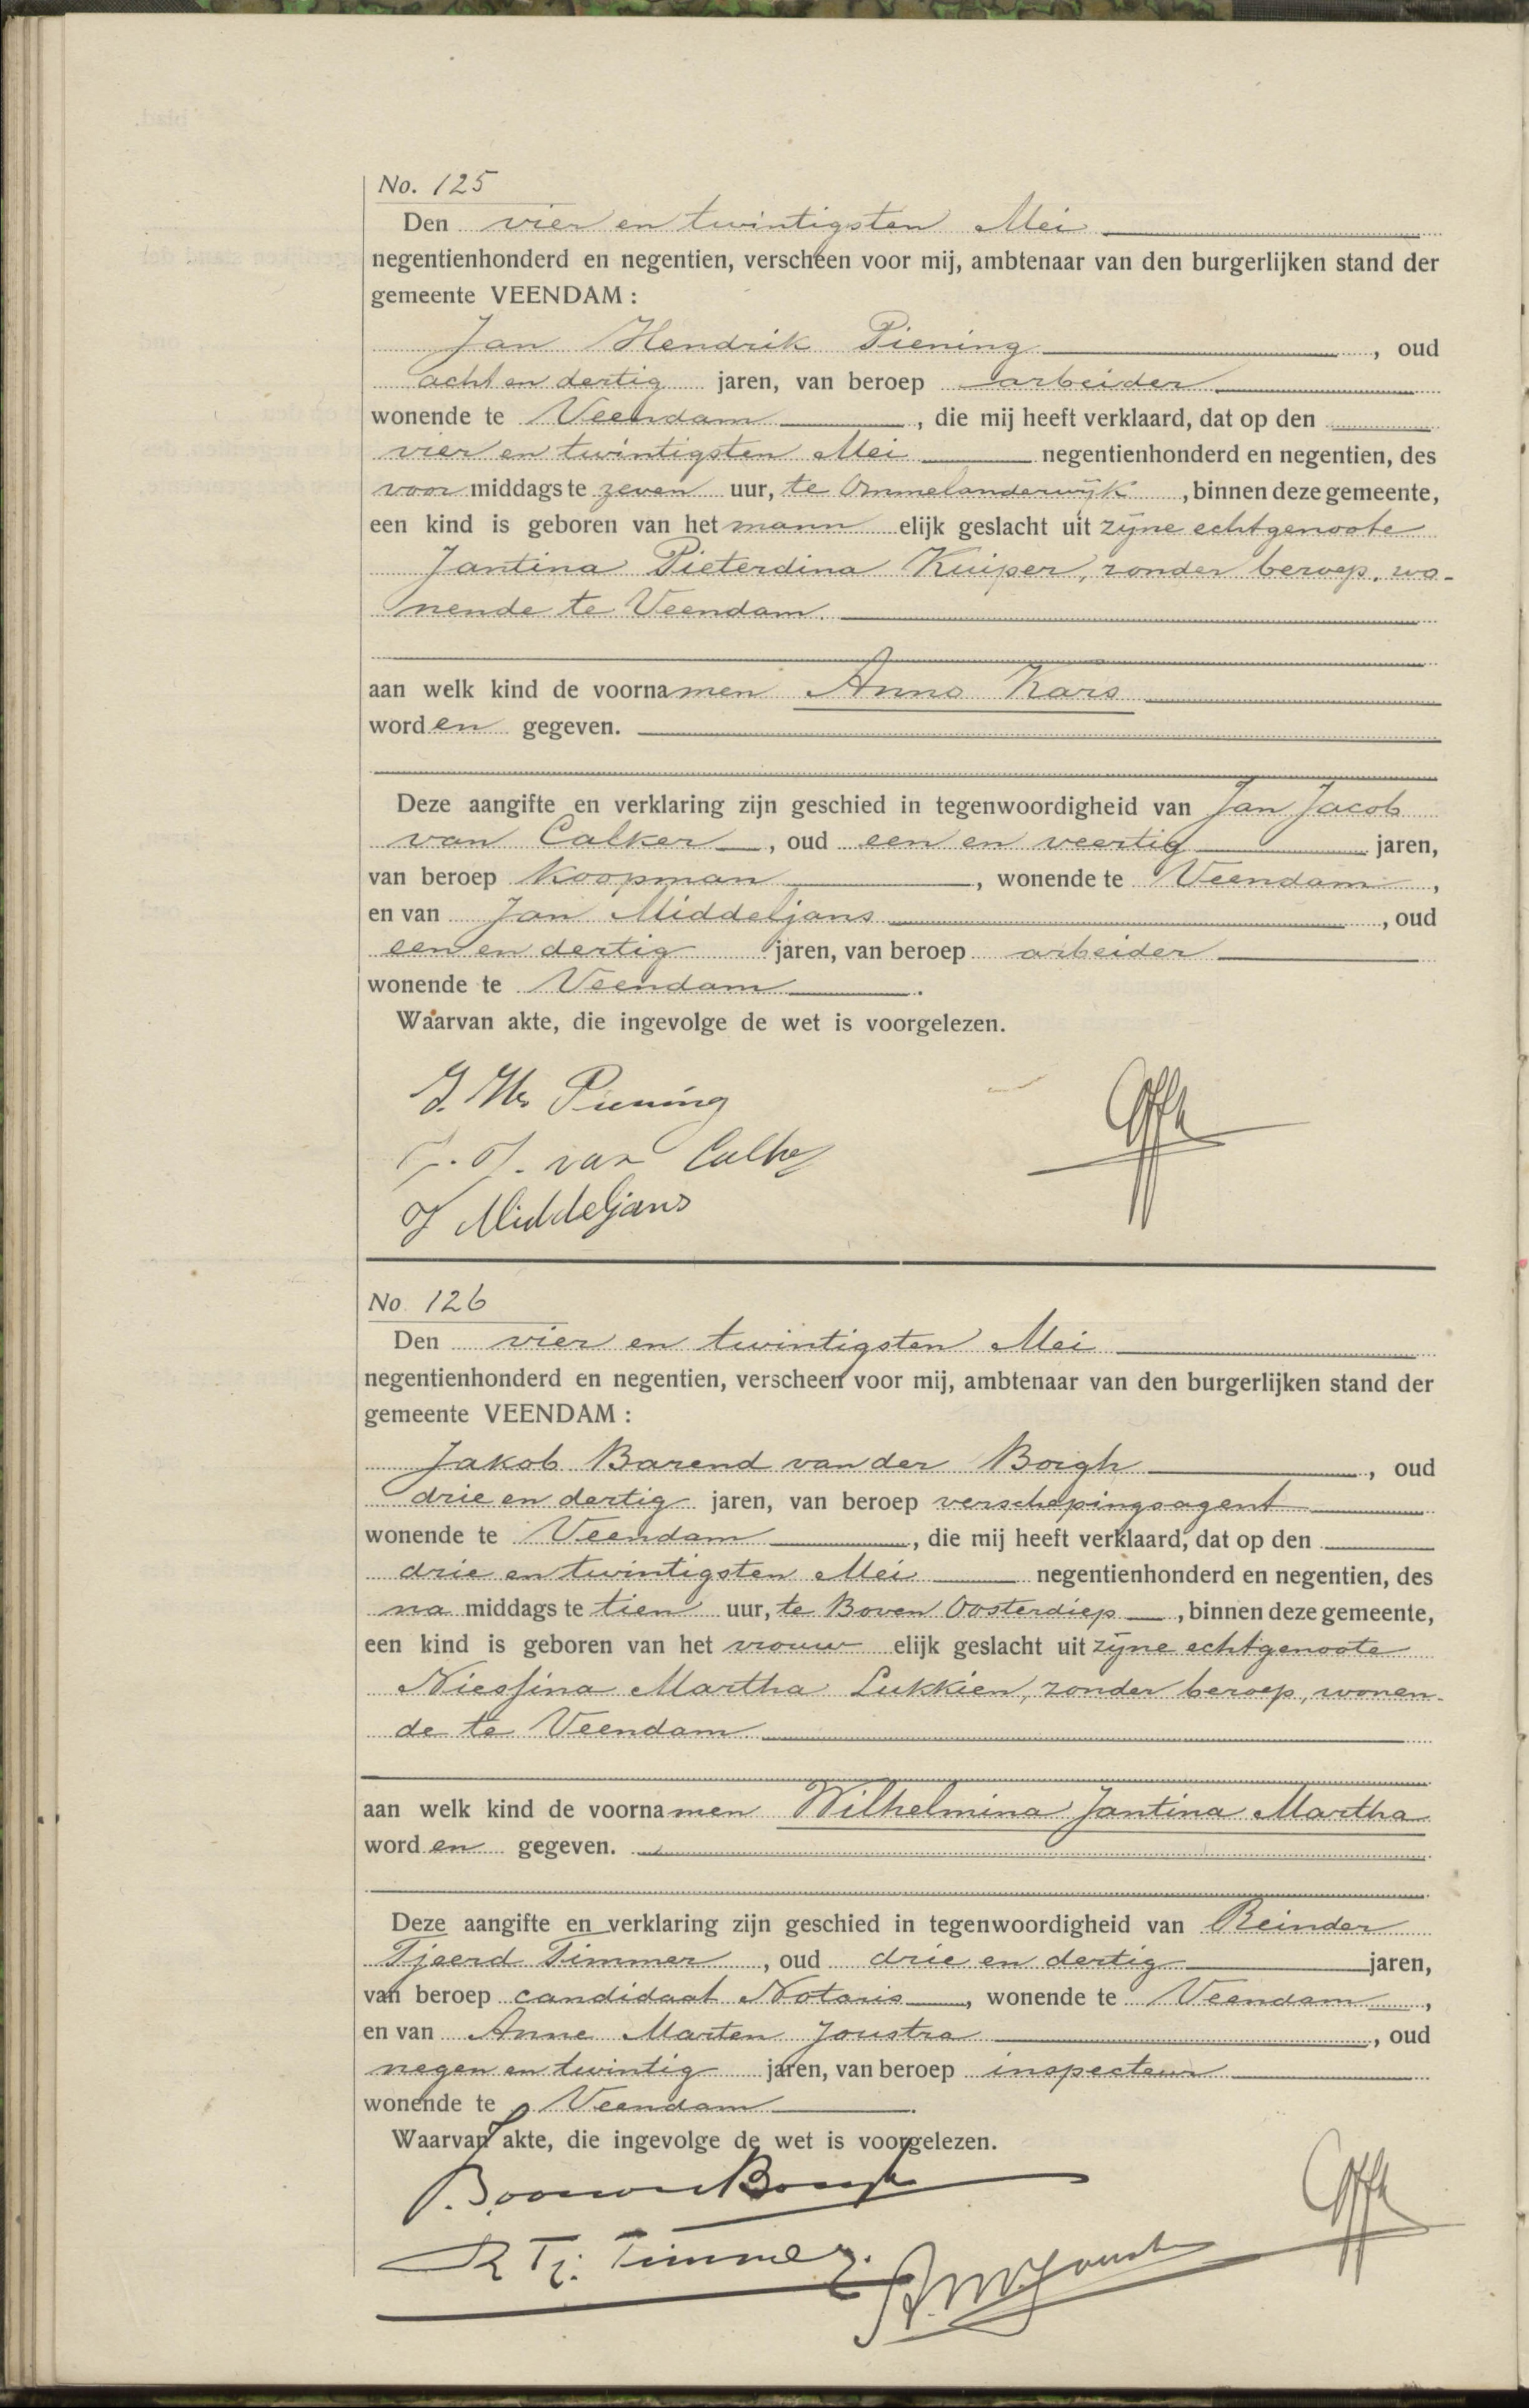 No. 125
Den vier en twintigsten Mei
negentienhonderd en negentien, verscheen voor mij, ambtenaar van den burgerlijken stand der
gemeente VEENDAM:
Jan Hendrik Piening, oud
acht en dertig jaren, van beroep arbeider
wonende te Veendam, die mij heeft verklaard, dat op den
vier en twintigsten Mei negentienhonderd en negentien, des
voor middags te zeven uur, te Ommelanderwijk, binnen deze gemeente,
een kind is geboren van het mann elijk geslacht uit zijne echtgenoote
Jantina Pieterdina Kuiper, zonder beroep, wo-
nende te Veendam.
aan welk kind de voornamen Anno Kars
worden gegeven.
Deze aangifte en verklaring zijn geschied in tegenwoordigheid van Jan Jacob
van Calker, oud een en veertig jaren,
van beroep Koopman, wonende te Veendam,
en van Jan Middeljans, oud
een en dertig jaren, van beroep arbeider
wonende te Veendam.
Waarvan akte, die ingevolge de wet is voorgelezen.
J. H. Piening
J. J. van Calker
J Middeljans
No. 126
Den vier en twintigsten Mei
negentienhonderd en negentien, verscheen voor mij, ambtenaar van den burgerlijken stand der
gemeente VEENDAM:
Jakob Barend van der Borgh, oud
drie en dertig jaren, van beroep verschepingsagent
wonende te Veendam, die mij heeft verklaard, dat op den
drie en twintigsten Mei negentienhonderd en negentien, des
na middags te tien uur, te Boven Oosterdiep, binnen deze gemeente,
een kind is geboren van het vrouw elijk geslacht uit zijne echtgenoote
Niessina Martha Lukkien, zonder beroep, wonen-
de te Veendam
aan welk kind de voornamen Wilhelmina Jantina Martha
worden gegeven.
Deze aangifte en verklaring zijn geschied in tegenwoordigheid van Reinder
Tjeerd Timmer, oud drie en dertig jaren,
van beroep candidaat Notaris, wonende te Veendam,
en van Anne Marten Joustra, oud
negen en twintig jaren, van beroep inspecteur
wonende te Veendam.
Waarvan akte, die ingevolge de wet is voorgelezen.
R Tj. Timmer.
A. M. Joustra